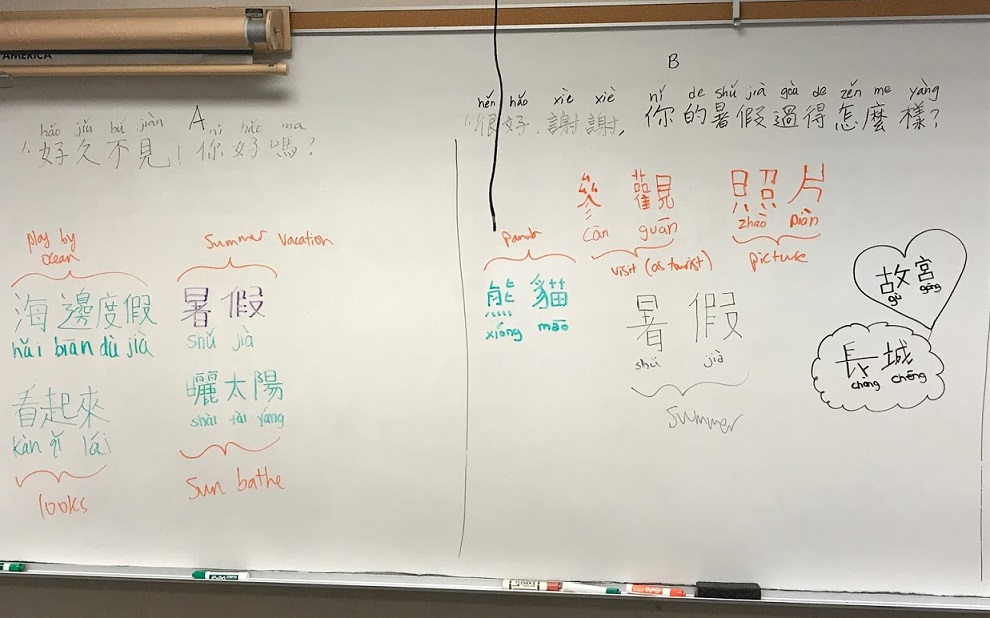 AMERICA
A
hǎo jiǔ bú jiàn nǐ hǎo ma
1. 好久不見！你好嗎？
play by
ocean
海邊度假
hǎi biān dù jià
Summer vacation
暑假
shǔ jià
看起來
kàn qǐ lái
looks
曬太陽
shài tài yáng
Sun bathe
B
hěn hǎo xiè xiè nǐ de shǔ jià guò de zěn me yàng
1. 很好，謝謝，你的暑假過得怎麼樣？
參觀
cān guān
visit (as tourist)
照片
zhào piàn
picture
熊貓
xióng māo
暑假
shǔ jià
Summer
故宮
gù gōng
長城
cháng chéng